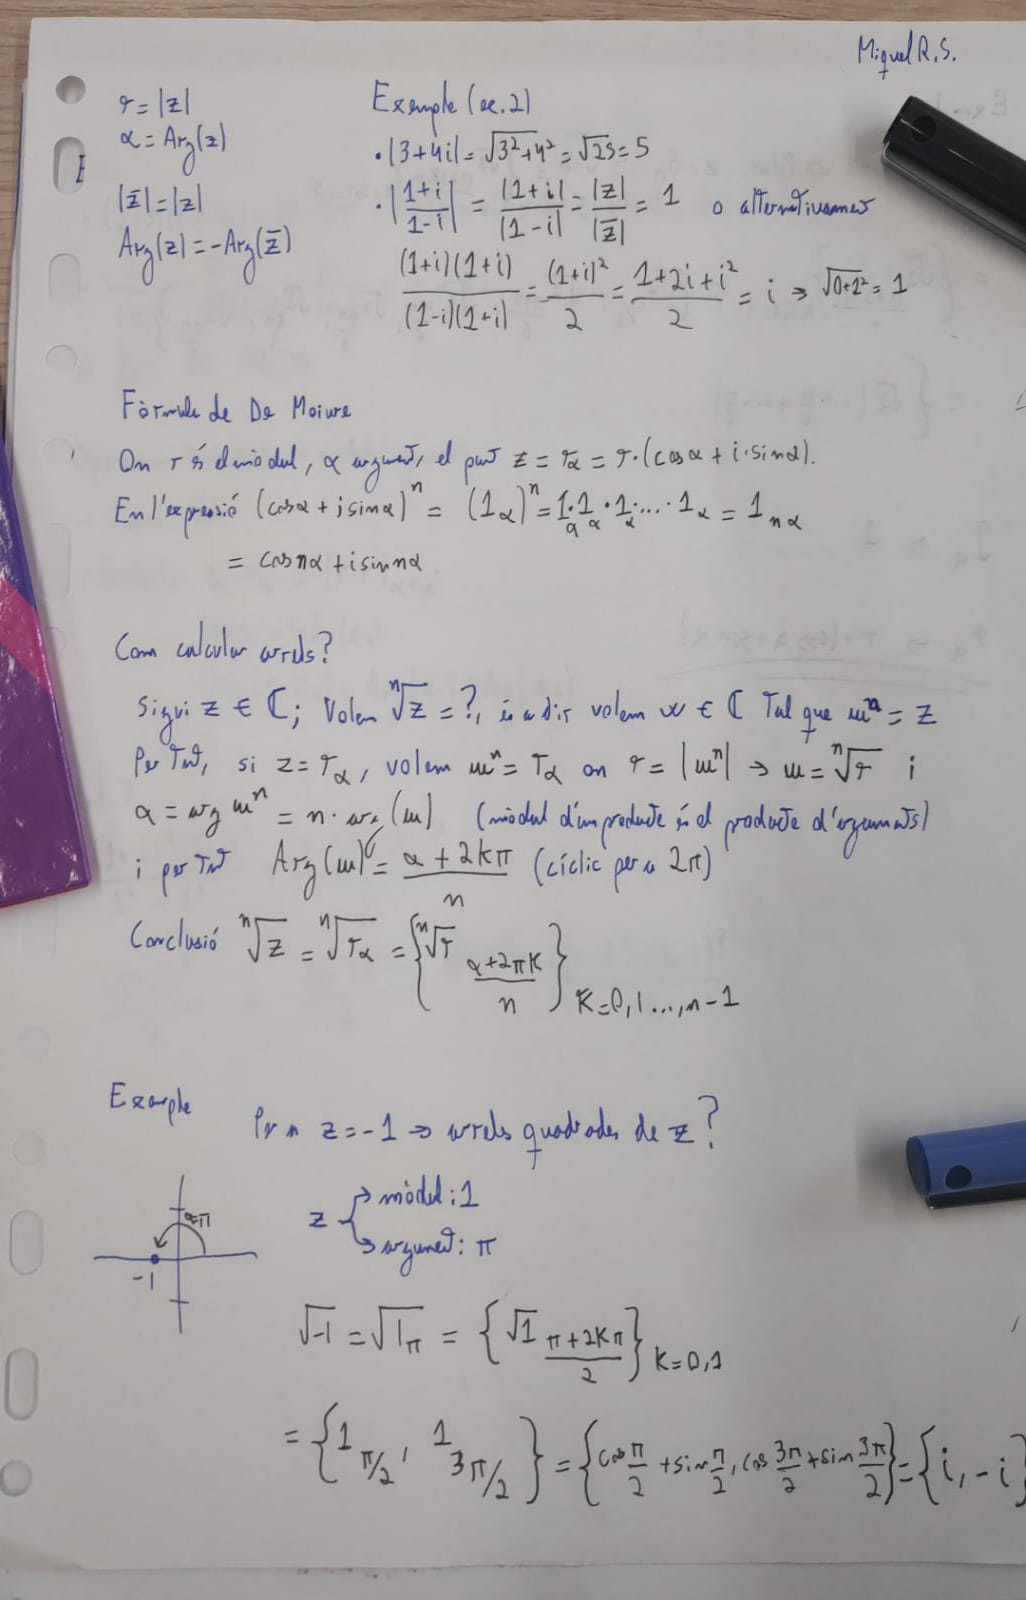 Miquel R.S.
r = |z|
α = Arg(z)
|z̄| = |z|
Arg(z) = -Arg(z̄)
Exemple (ex. 2)
· |3+4i| = √(3²+4²) = √25 = 5
· |(1+i)/(1-i)| = |1+i|/|1-i| = |z|/|z̄| = 1 o alternativament
(1+i)(1+i)/((1-i)(1+i)) = (1+i)²/2 = (1+2i+i²)/2 = i → √(0+1²) = 1
Fórmula de De Moivre
On r és el mòdul, α argument, el punt z = r_α = r·(cosα + i·sinα).
En l'expressió (cosα + i sinα)^n = (1_α)^n = 1_α·1_α·1_α·...·1_α = 1_nα
= cos nα + i sin nα
Com calcular arrels?
Sigui z ∈ ℂ; Volem ⁿ√z = ?, és a dir volem w ∈ ℂ Tal que w^n = z
Per Tant, si z = r_α, volem w^n = r_α on r = |w^n| → w = ⁿ√r i
α = arg w^n = n·arg(w) (mòdul d'un producte és el producte d'arguments)
i per Tant Arg(w) = (α + 2kπ)/n (cíclic per a 2π)
Conclusió ⁿ√z = ⁿ√r_α = {ⁿ√r_(α+2πk)/n} k=0,1...,n-1
Exemple
Per a z = -1 → arrels quadrades de z?
z → mòdul: 1
→ argument: π
α=π
-1
√-1 = √1_π = {√1_(π+2kπ)/2} k=0,1
= {1_π/2, 1_3π/2} = {cos π/2 + sin π/2, cos 3π/2 + sin 3π/2} = {i, -i}